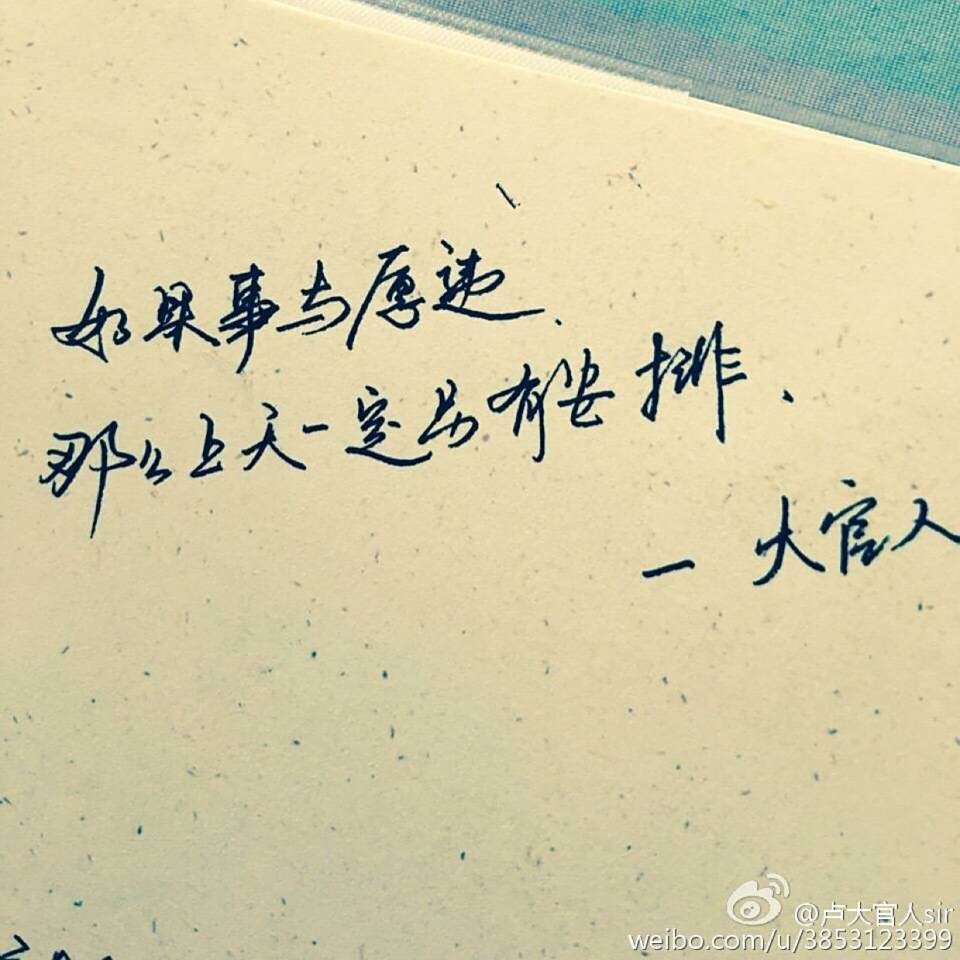 如果事与愿违、
那么上天一定另有安排、
一 大官人
@卢大官人sir
weibo.com/u/3853123399